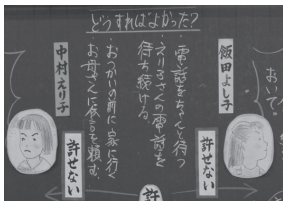 どうすればよかった?
おいで。
飯田よし子
許せない
・電話をちゃんと待つ
・えり子さんの電話を
待ち続ける。
・おつかいの前に家に行く
お母さんに伝言を頼む。
中村えり子
許せない
許